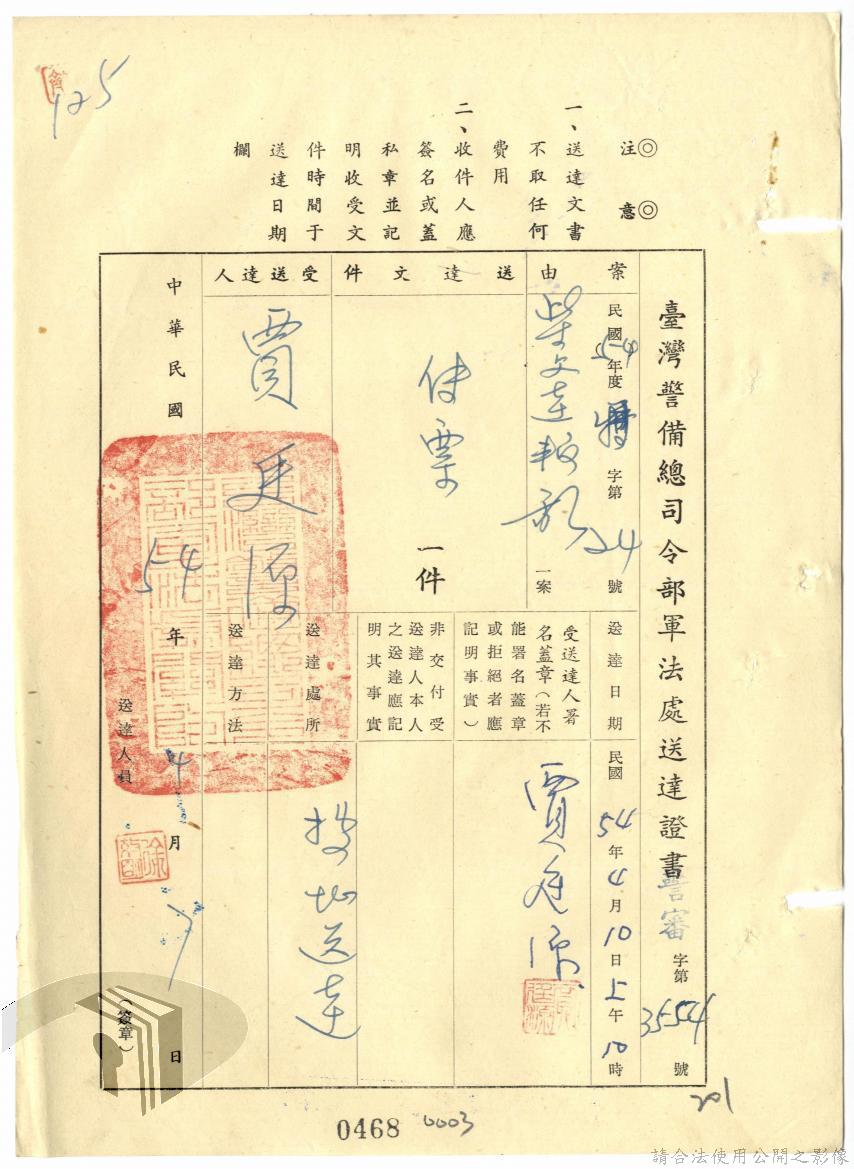 125
◎注意◎
一、送達文書
不取任何
費用
二、收件人應
簽名或蓋
私章並記
明收受文
件時間于
送達日期
欄
臺灣警備總司令部軍法處送達證書
警審字第3554號
案由
民國54年度警字第24號
柴文達叛亂一案
送達文件
傳票一件
受送達人
賈廷源
送達日期
民國54年4月10日上午10時
受送達人署
名蓋章(若不
能署名蓋章
或拒絕者應
記明事實)
賈廷源
非交付受
送達人本人
之送達應記
明其事實
送達處所
按址送達
送達方法
中華民國54年4月7日
送達人員
(簽章)
201
0468
0003
請合法使用公開之影像